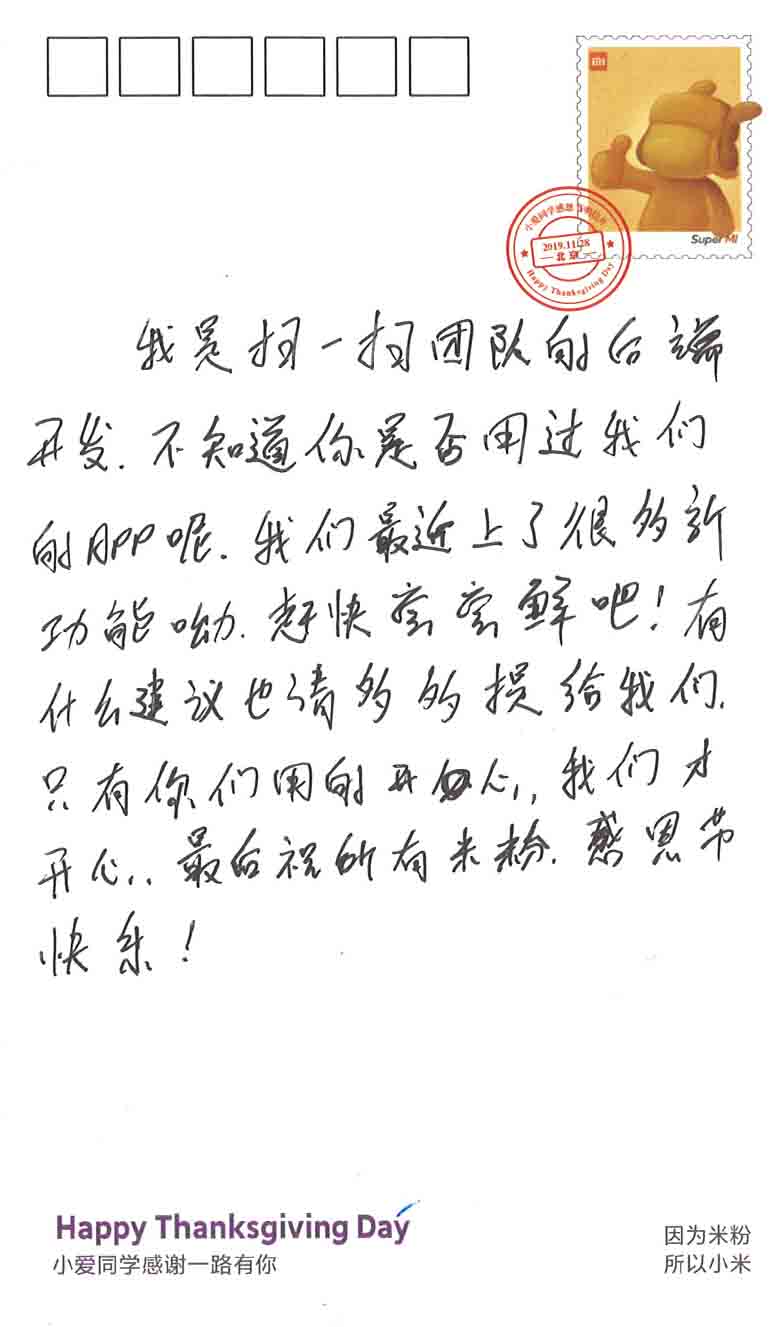 MI
Super MI
小爱同学感恩节明信片
2019.11.28
北京
Happy Thanksgiving Day
我是扫一扫团队的后端
开发.不知道你是否用过我们
的APP呢.我们最近上了很多新
功能呦.赶快尝尝鲜吧!有
什么建议也请多多提给我们.
只有你们用的开心,我们才
开心.最后祝所有米粉.感恩节
快乐!
Happy Thanksgiving Day
小爱同学感谢一路有你
因为米粉
所以小米